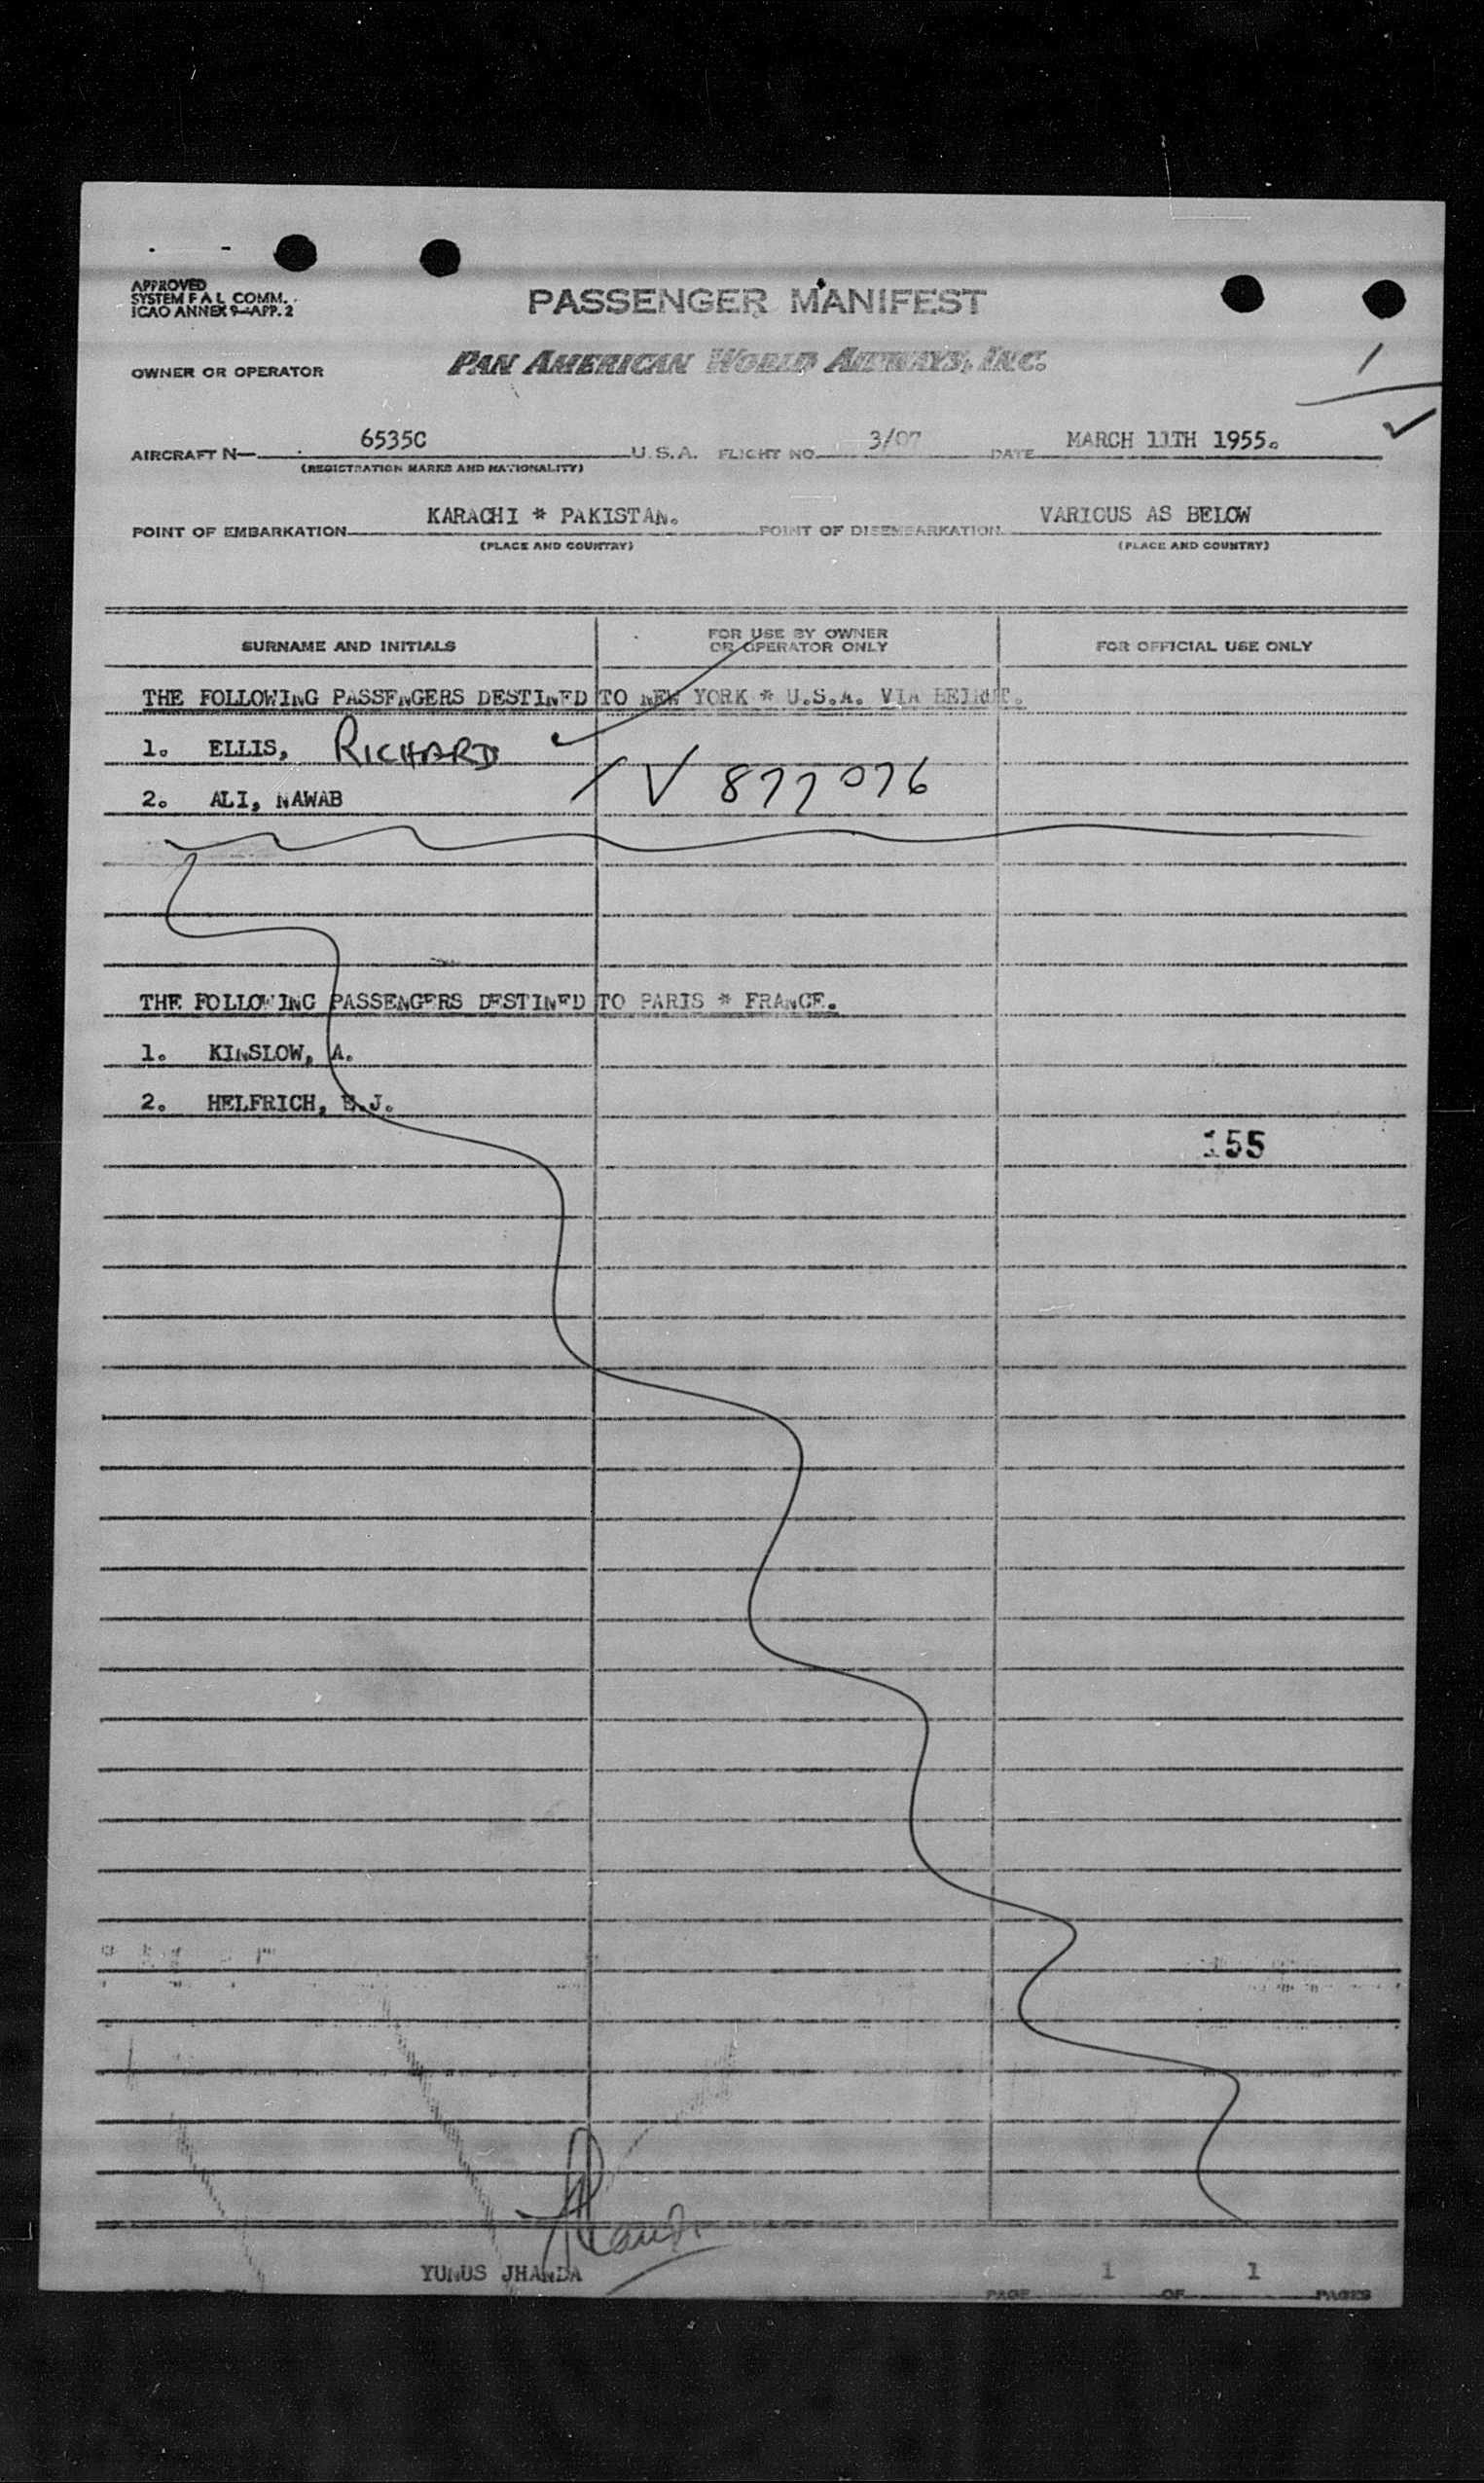 APPROVED
SYSTEM F A L COMM.
ICAO ANNEX 9-APP. 2
PASSENGER MANIFEST
OWNER OR OPERATOR PAN AMERICAN WORLD AIRWAYS, INC.
1
AIRCRAFT N- 6535C U.S.A. FLIGHT NO. 3/07 DATE MARCH 11TH 1955.
(REGISTRATION MARKS AND NATIONALITY)
POINT OF EMBARKATION KARACHI * PAKISTAN. POINT OF DISEMBARKATION VARIOUS AS BELOW
(PLACE AND COUNTRY) (PLACE AND COUNTRY)
SURNAME AND INITIALS FOR USE BY OWNER OR OPERATOR ONLY FOR OFFICIAL USE ONLY
THE FOLLOWING PASSENGERS DESTINED TO NEW YORK * U.S.A. VIA BEIRUT.
1. ELLIS, RICHARD
2. ALI, NAWAB V 877076
THE FOLLOWING PASSENGERS DESTINED TO PARIS * FRANCE.
1. KINSLOW, A.
2. HELFRICH, E.J.
155
YUNUS JHANDA 1 1
PAGE OF PAGES